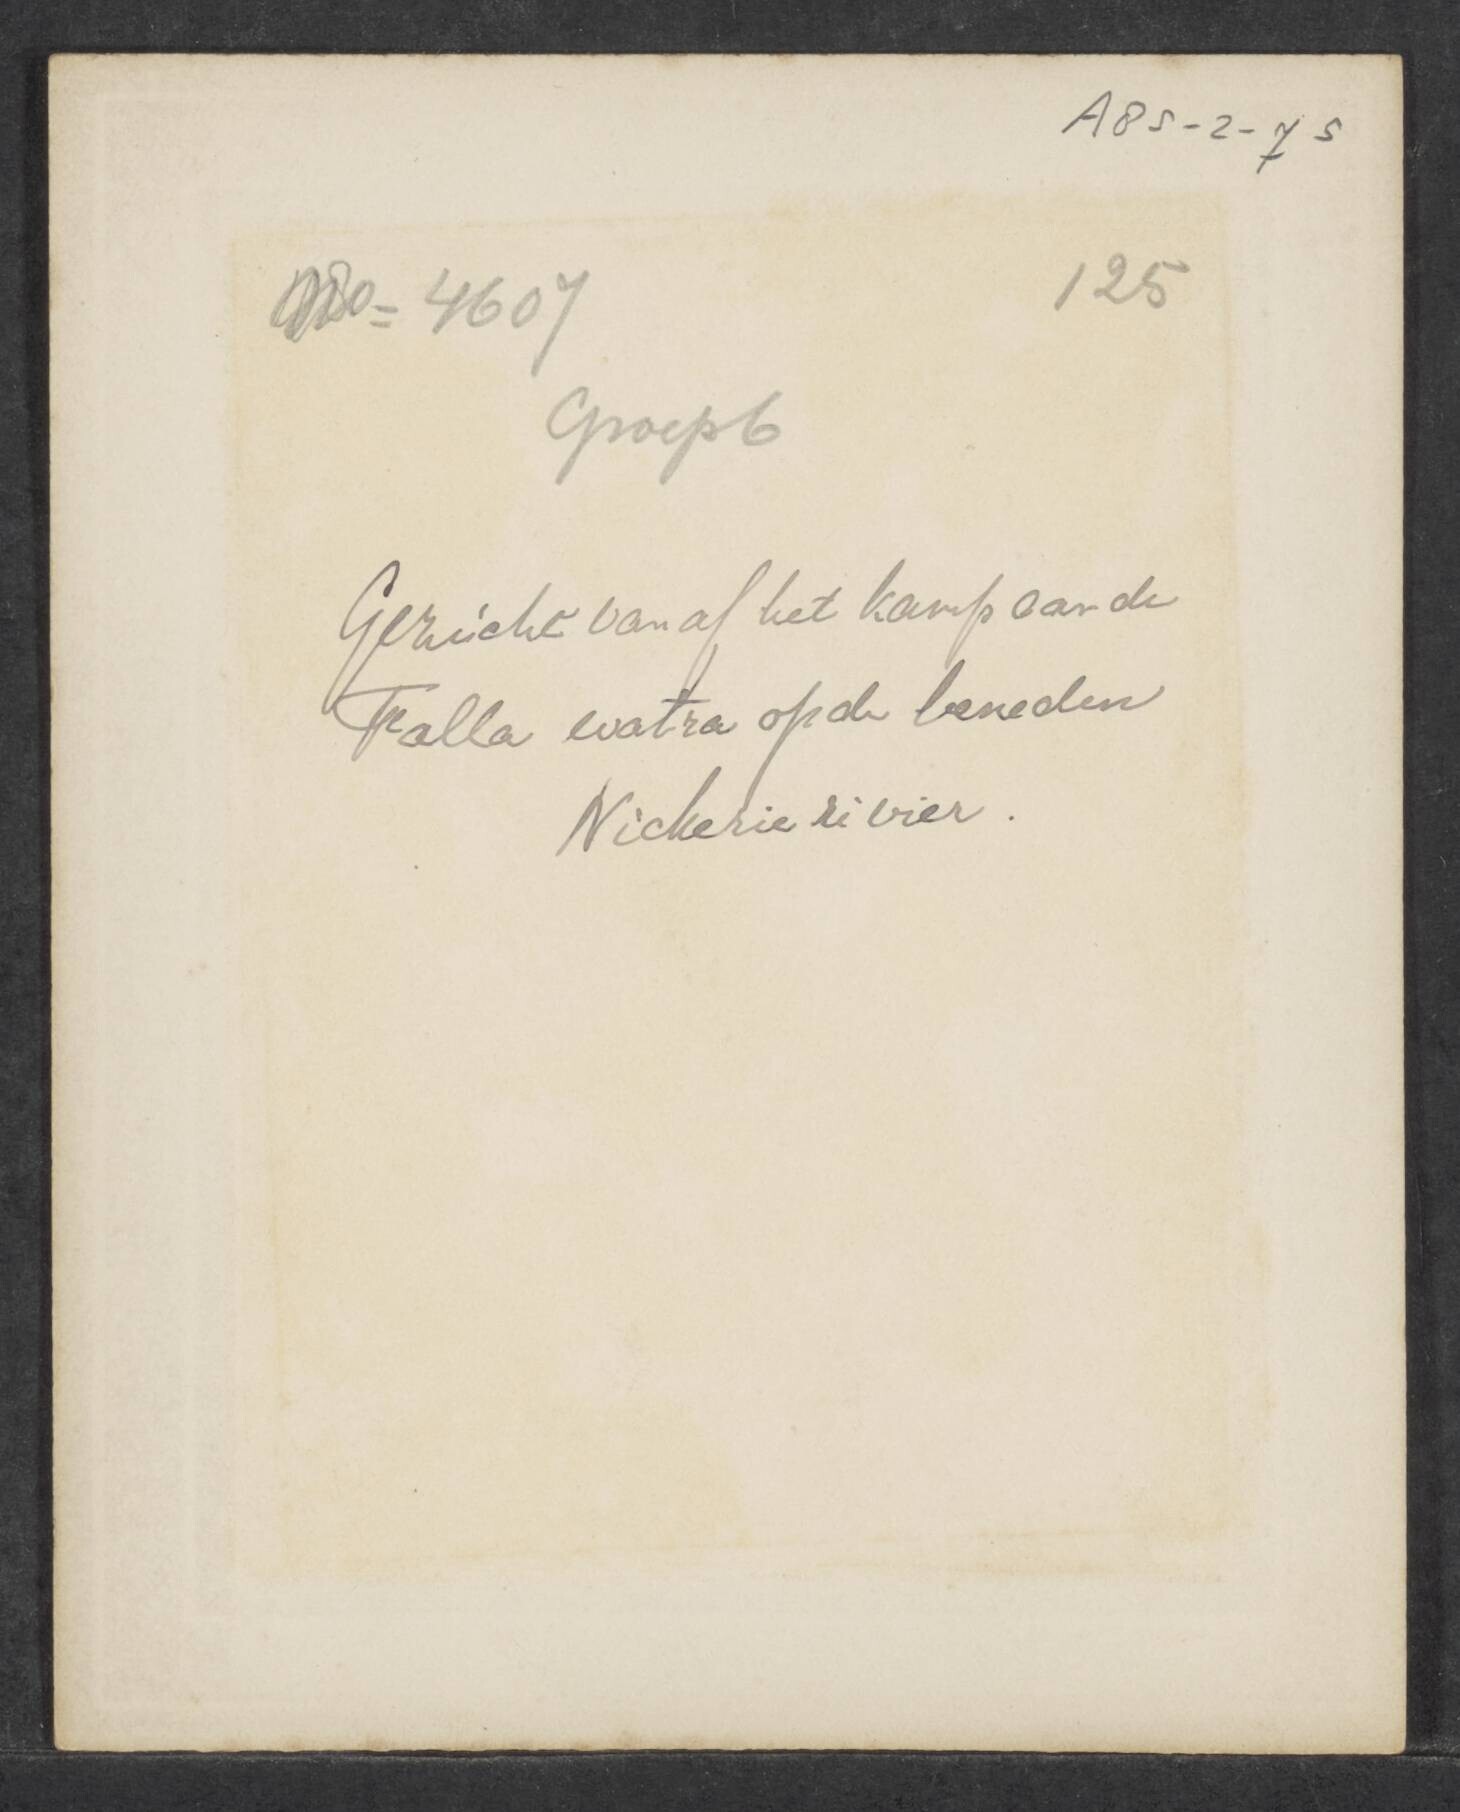 A85-2-75
4607
125
Groep 6
Gezicht vanaf het kamp aan de
Falla watra op de beneden
Nickerie rivier.